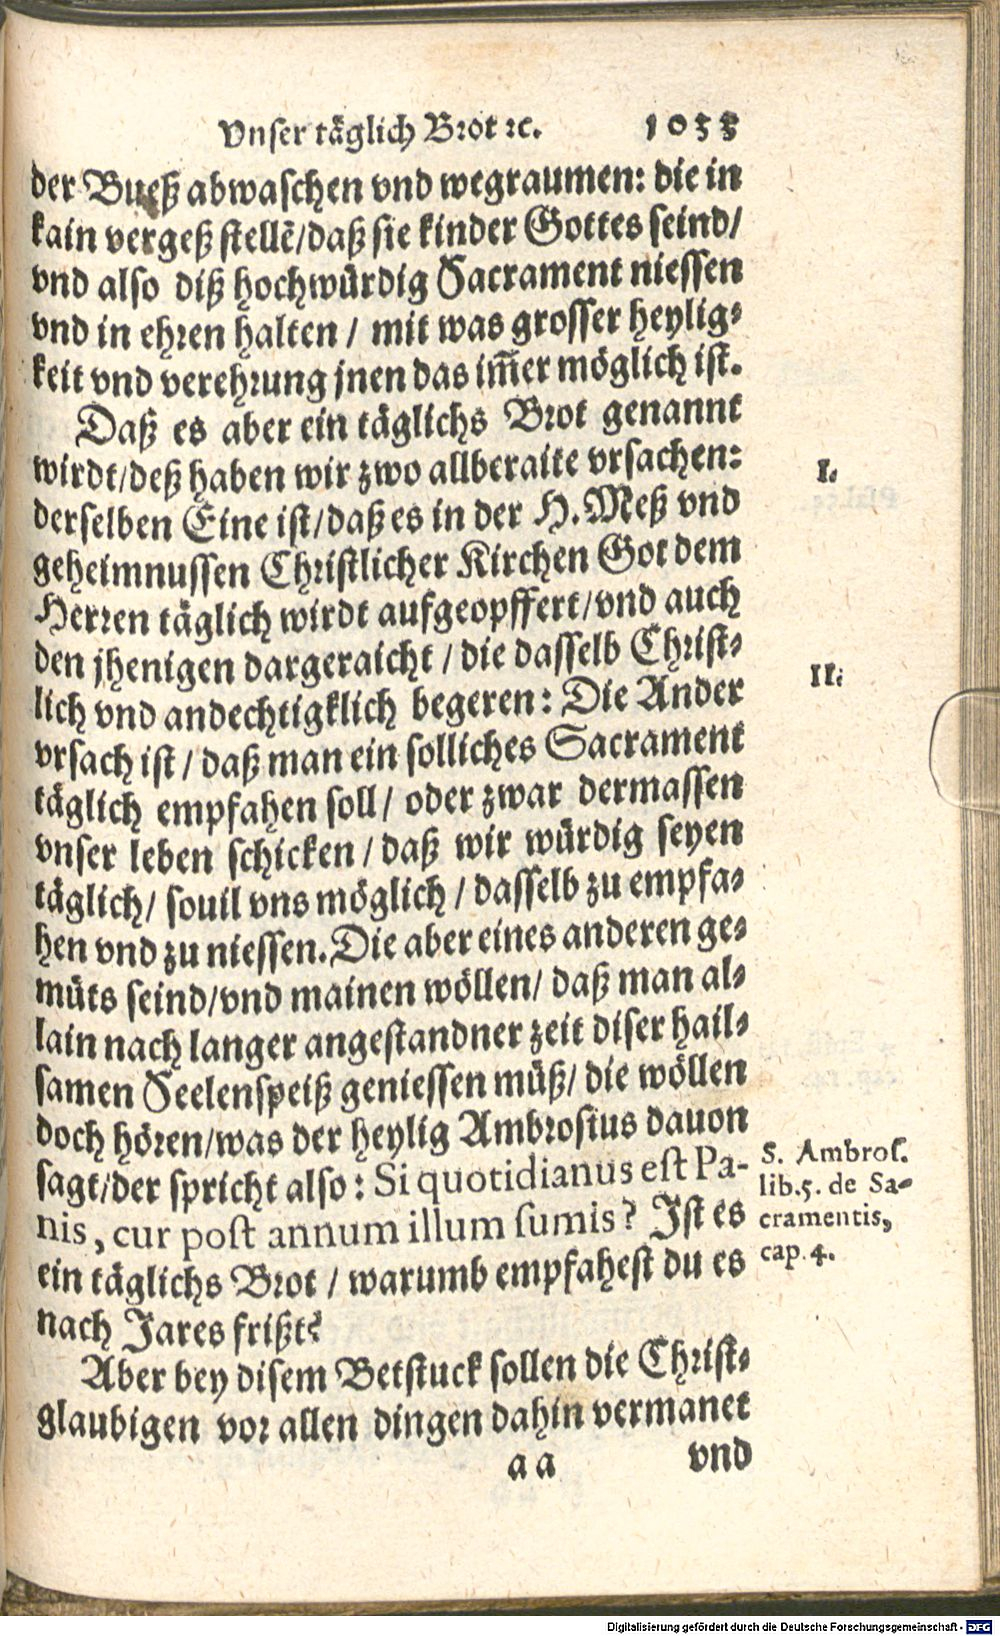 Vnser täglich Brot ꝛc. 1033
der Bueß abwaschen vnd wegraumen: die in
kain vergeß stellẽ/daß sie kinder Gottes seind/
vnd also diß hochwürdig Sacrament niessen
vnd in ehren halten / mit was grosser heylig-
keit vnd verehrung jnen das im̃er möglich ist.
Daß es aber ein täglichs Brot genannt
wirdt/deß haben wir zwo allberaite vrsachen:
I.
derselben Eine ist/daß es in der H. Meß vnd
geheimnussen Christlicher Kirchen Got dem
Herren täglich wirdt aufgeopffert/vnd auch
den jhenigen dargeraicht / die dasselb Christ-
II.
lich vnd andechtigklich begeren: Die Ander
vrsach ist / daß man ein solliches Sacrament
täglich empfahen soll / oder zwar dermassen
vnser leben schicken / daß wir würdig seyen
täglich/ souil vns möglich / dasselb zu empfa-
hen vnd zu niessen. Die aber eines anderen ge-
müts seind/vnd mainen wöllen/ daß man al-
lain nach langer angestandner zeit diser hail-
samen Seelenspeiß geniessen müß/ die wöllen
doch hören/was der heylig Ambrosius dauon
sagt/der spricht also: Si quotidianus est Pa-
nis, cur post annum illum sumis? Ist es
ein täglichs Brot / warumb empfahest du es
nach Jares frißt?
S. Ambros.
lib.5. de Sa-
cramentis,
cap. 4.
Aber bey disem Betstuck sollen die Christ-
glaubigen vor allen dingen dahin vermanet
aa vnd
Digitalisierung gefördert durch die Deutsche Forschungsgemeinschaft - DFG